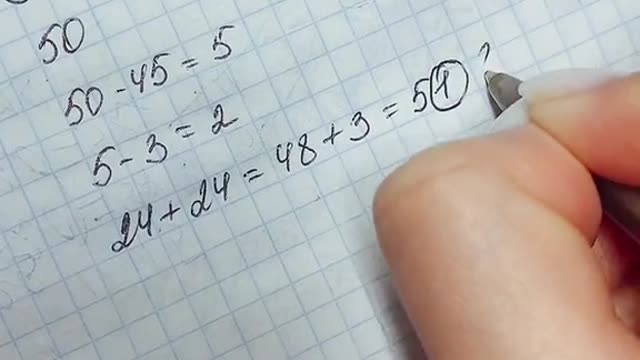 50
50 - 45 = 5
5 - 3 = 2
24 + 24 = 48 + 3 = 51 ?